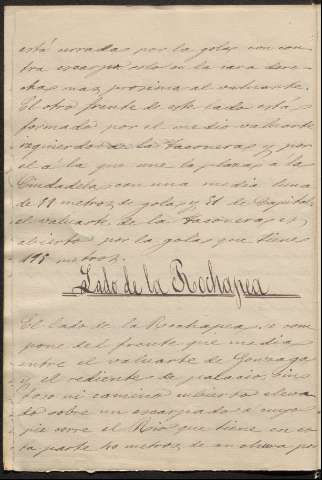 está cerradas por la golas con con
tra escarpa solo en la cara dere-
cha mas proxima al valuarte.
El otro frente de este lado está
formado por el medio valuarte
izquierdo de la Taconera y por
el á la que une la plaza a la
Ciudadela con una media luna
de 88 metros de gola y 31 de Capital
el valuarte de la Taconera es
abierto por la gola que tiene
195 metros.
Lado de la Rochapea
El lado de la Rochapea, se com
pone del frente que media
entre el valuarte de Gonzaga
y el rediente de palacio, sin
foso ni camino cubierto eleva
do sobre un escarpado á cuyo
pie corre el Rio que tiene en es
ta parte 40 metros de anchura por